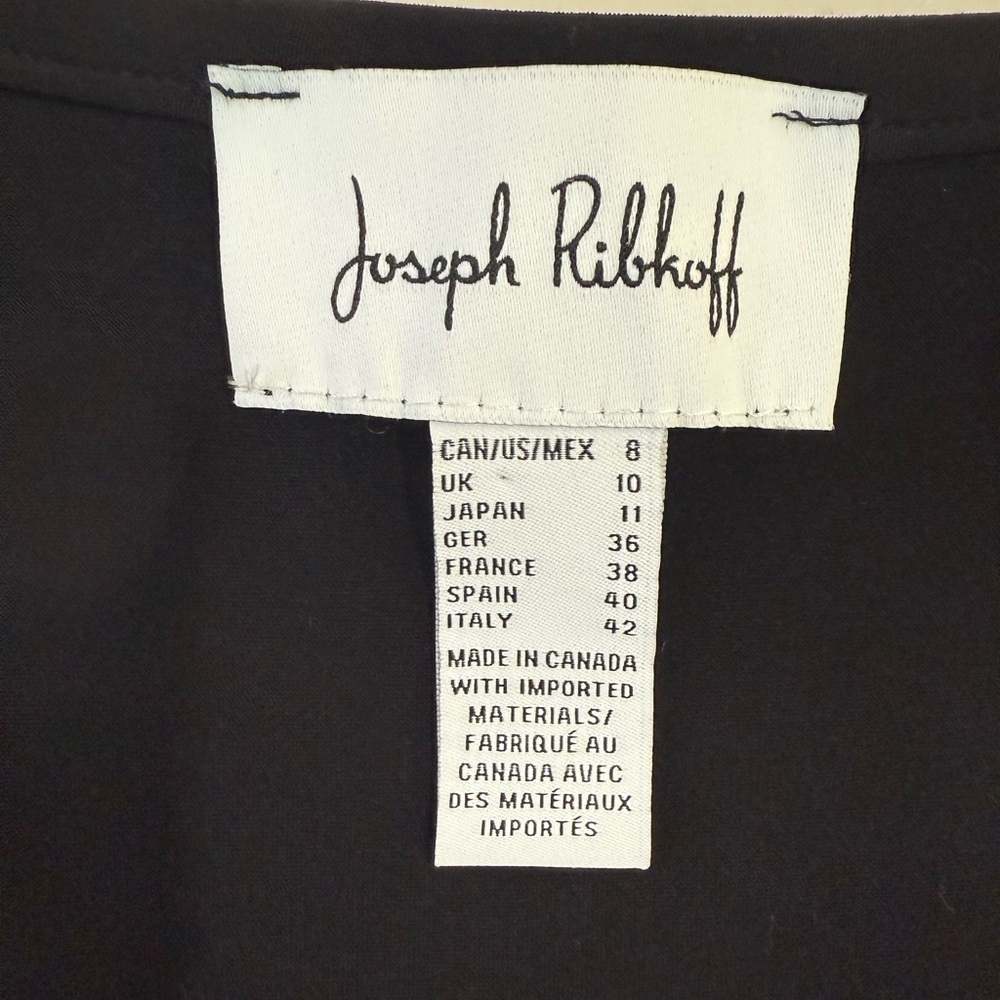 Joseph Ribkoff
CAN/US/MEX 8
UK 10
JAPAN 11
GER 36
FRANCE 38
SPAIN 40
ITALY 42
MADE IN CANADA
WITH IMPORTED
MATERIALS/
FABRIQUÉ AU
CANADA AVEC
DES MATÉRIAUX
IMPORTÉS